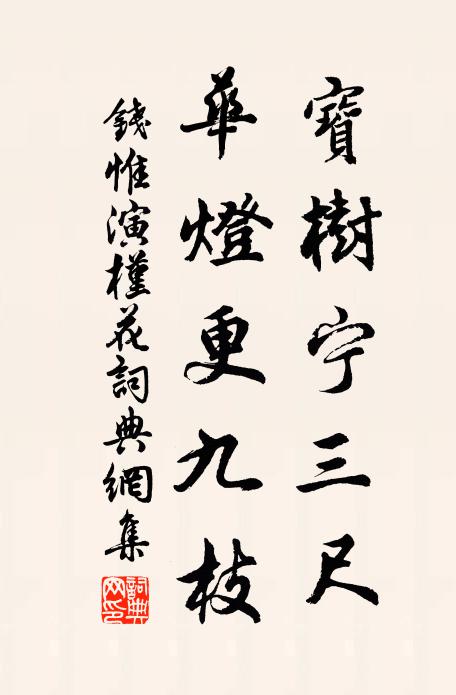 寶樹宁三尺
華燈更九枝
錢惟演槿花詞典網集
詞典网印